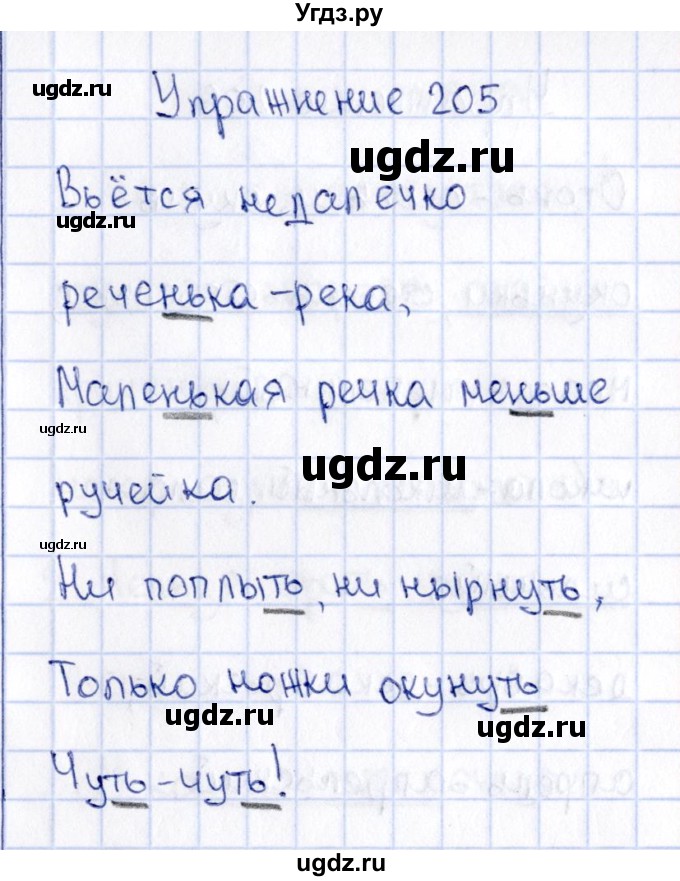 Угдз.ру
ugdz.ru
Упражнение 205
ugdz.ru
Вьётся недалечко
ugdz.ru
реченька-река,
Маленькая речка меньше
ugdz.ru
ugdz.ru
ручейка.
ugdz.ru
Ни поплыть, ни нырнуть,
Только ножки окунуть
ugdz.ru
ugdz.ru
Чуть-чуть!
ugdz.ru